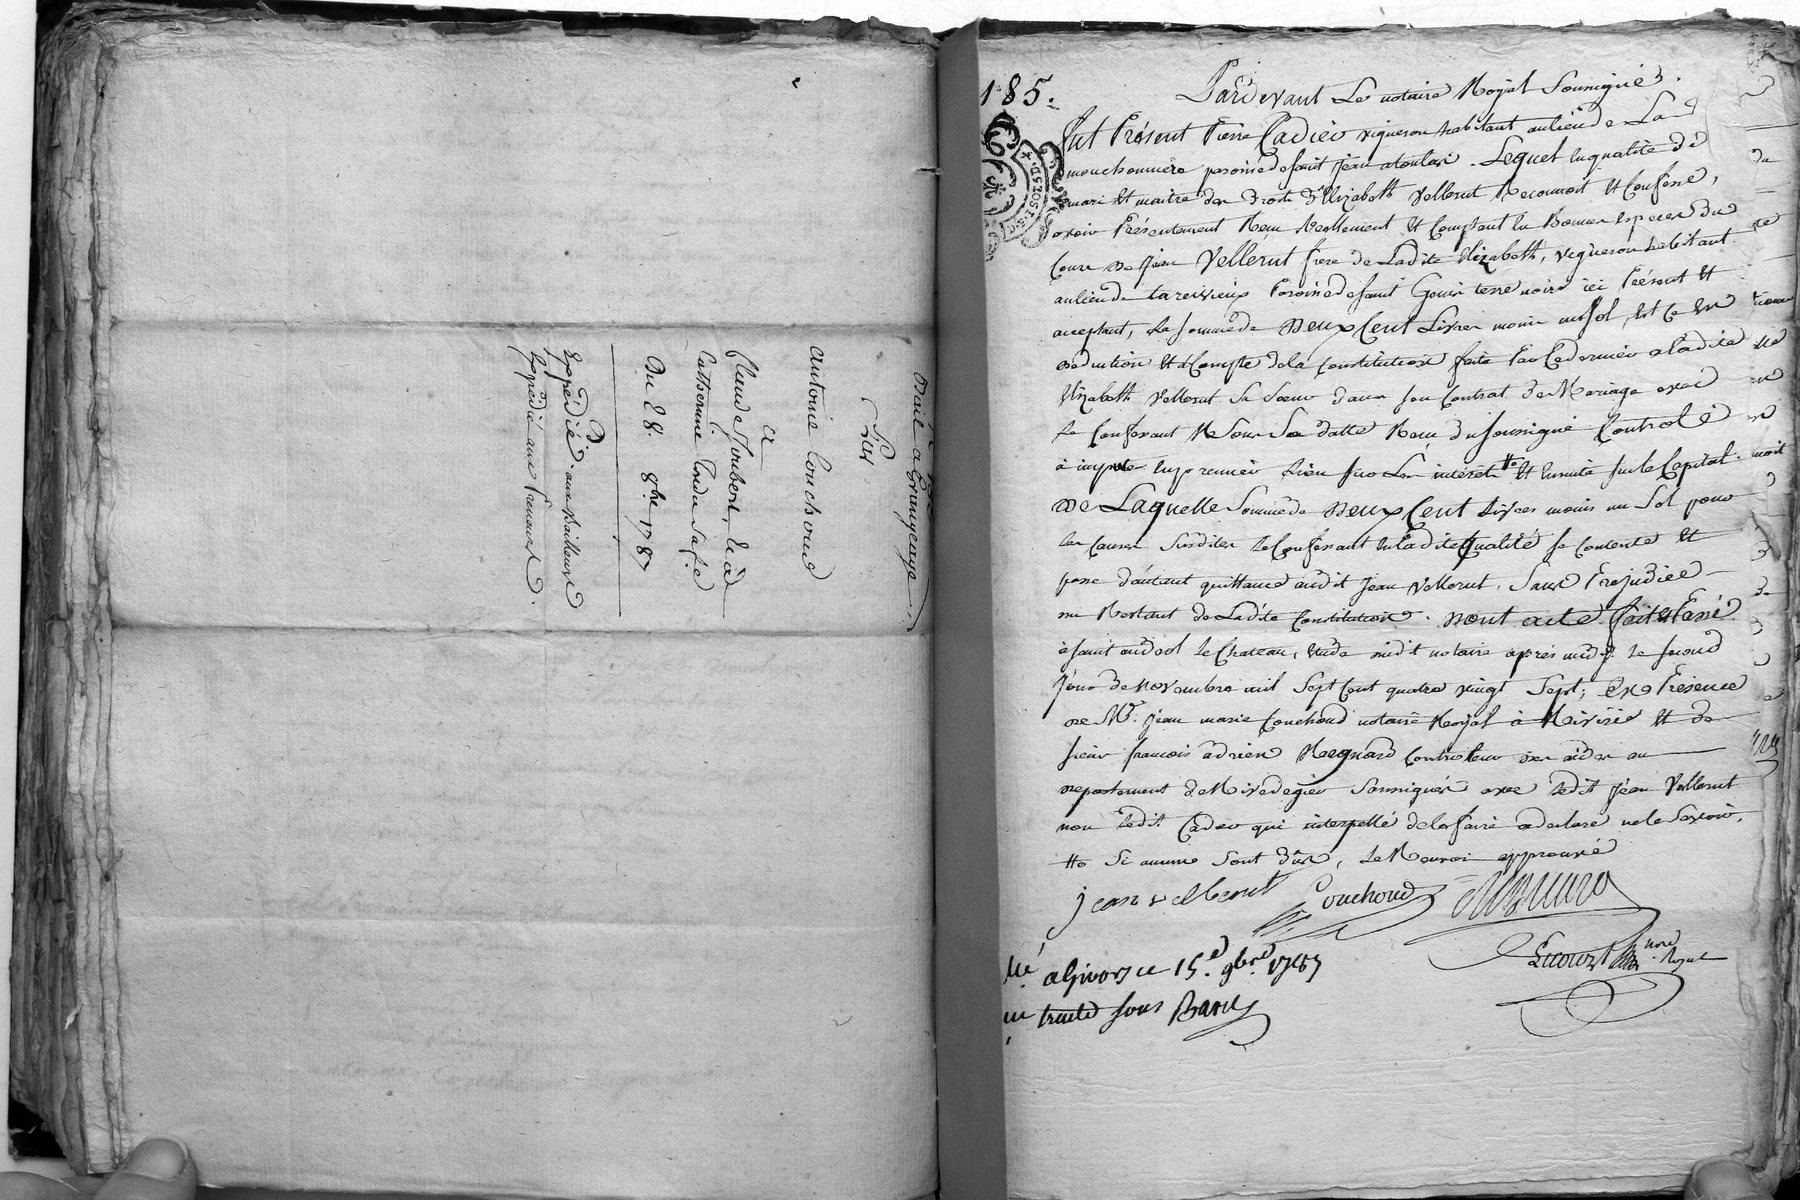 Bail a Grangeage,
Par
antoine Couchoud
a
Claude Joubert, et à
Catherine
Du 28. 8bre 1787
Expédié aux Bailleurs
Expédié aux Preneurs.
185.
Pardevant Le notaire Royal Soussigné.
fut Présent Pierre Cadier vigneron habitant au lieu de La
mouchonnière paroisse de saint jean atoulas. Lequel en qualité de
mari et maitre des droits d'Elizabeth Vellerut Reconnoit et Confesse,
avoir Présentement Reçu Réellement et Comptant en Bonnes especes du
Cours de jean Vellerut frere de Ladite Elizabeth, vigneron habitant
au lieu de tarevieux Paroisse de saint Genis terre noire ici Présent et
acceptant, La somme de Deux Cent Livres moins un sol, Et Ce En
déduction et à Compte de la Constitution faite Par Ce dernier a ladite
Elizabeth Vellerut Sa Soeur dans son Contrat de Mariage avec
le Confessant Sous Sa datte Reçu du soussigné Controlé
à imputer en premier Lieu sur Les intérêts #o et Ensuite sur le Capital.
De Laquelle Somme de Deux Cent Livres moins un Sol pour
les Causes Susdites le Confessant En ladite Qualité se Contente et
passe d'autant quittance audit jean Vellerut, Sans Prejudice
du Restant de Ladite Constitution. Dont acte fait et Passé
à saint andeol le Chateau, Etude dudit notaire après midy le second
jour de Novembre mil Sept Cent quatre vingt Sept; En Présence
de Mr. jean marie Couchoud notaire Royal à Rivirie et de
sieur francois adrien Regnard Controleur des aides au
departement de Rivedegier Soussignés avec ledit jean Vellerut
non ledit Cadier qui interpellé de le faire a declaré ne le Savoir.
#o Si aucuns Sont dûs, le Renvoi approuvé
jean vellerut Couchoud
nore Royal
lé a Givors ce 15.e 9bre 1787
çu trente sous Barry